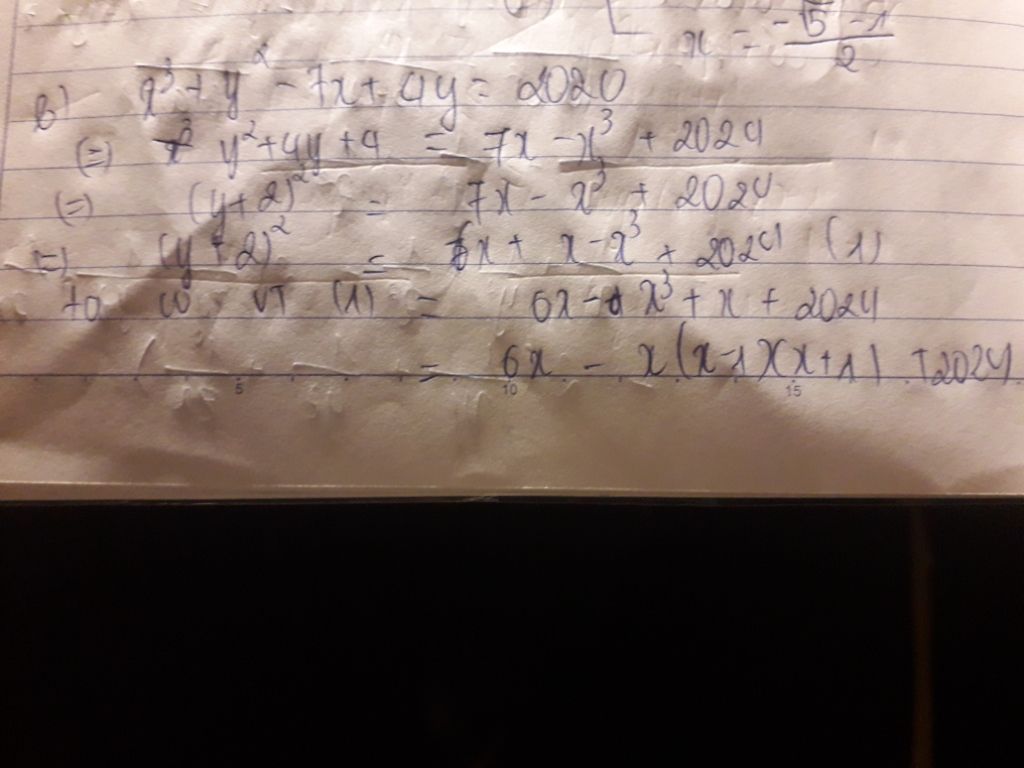 x = (-√5 - 1)/2
b) x³ + y² - 7x + 4y = 2020
(=) y² + 4y + 4 = 7x - x³ + 2024
(=) (y + 2)² = 7x - x³ + 2024
(=) (y + 2)² = 6x + x - x³ + 2024 (1)
ta có VT (1) = 6x - x³ + x + 2024
= 6x - x(x-1)(x+1) + 2024
5 10 15